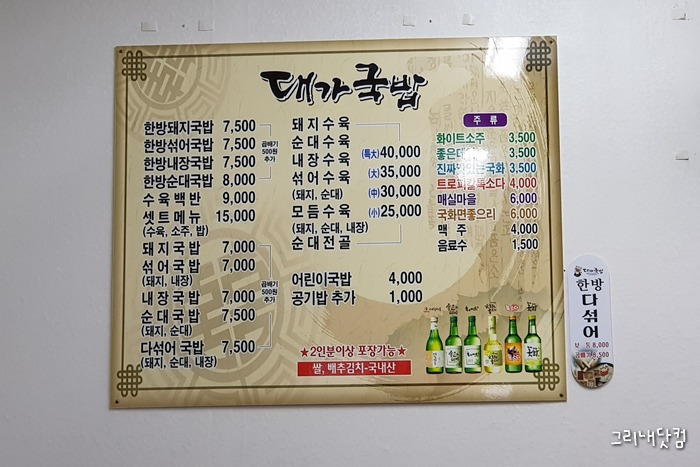 대가국밥
한방돼지국밥 7,500
한방섞어국밥 7,500
한방내장국밥 7,500
한방순대국밥 8,000
곱빼기
500원
추가
수육백반 9,000
셋트메뉴 15,000
(수육, 소주, 밥)
돼지국밥 7,000
섞어국밥 7,000
(돼지, 내장)
내장국밥 7,000
순대국밥 7,500
(돼지, 순대)
다섞어 국밥 7,500
(돼지, 순대, 내장)
곱빼기
500원
추가
돼지수육
순대수육
내장수육
섞어수육
(돼지, 순대)
모듬수육
(돼지, 순대, 내장)
순대전골
(특大) 40,000
(大) 35,000
(中) 30,000
(小) 25,000
어린이국밥 4,000
공기밥 추가 1,000
★2인분이상 포장가능★
쌀, 배추김치-국내산
주 류
화이트소주 3,500
좋은데이 3,500
국화 3,500
4,000
매실마을 6,000
국화면좋으리 6,000
맥 주 4,000
음료수 1,500
대가국밥
한방
다섞어
보통 8,000
곱빼기 8,500
그리내닷컴